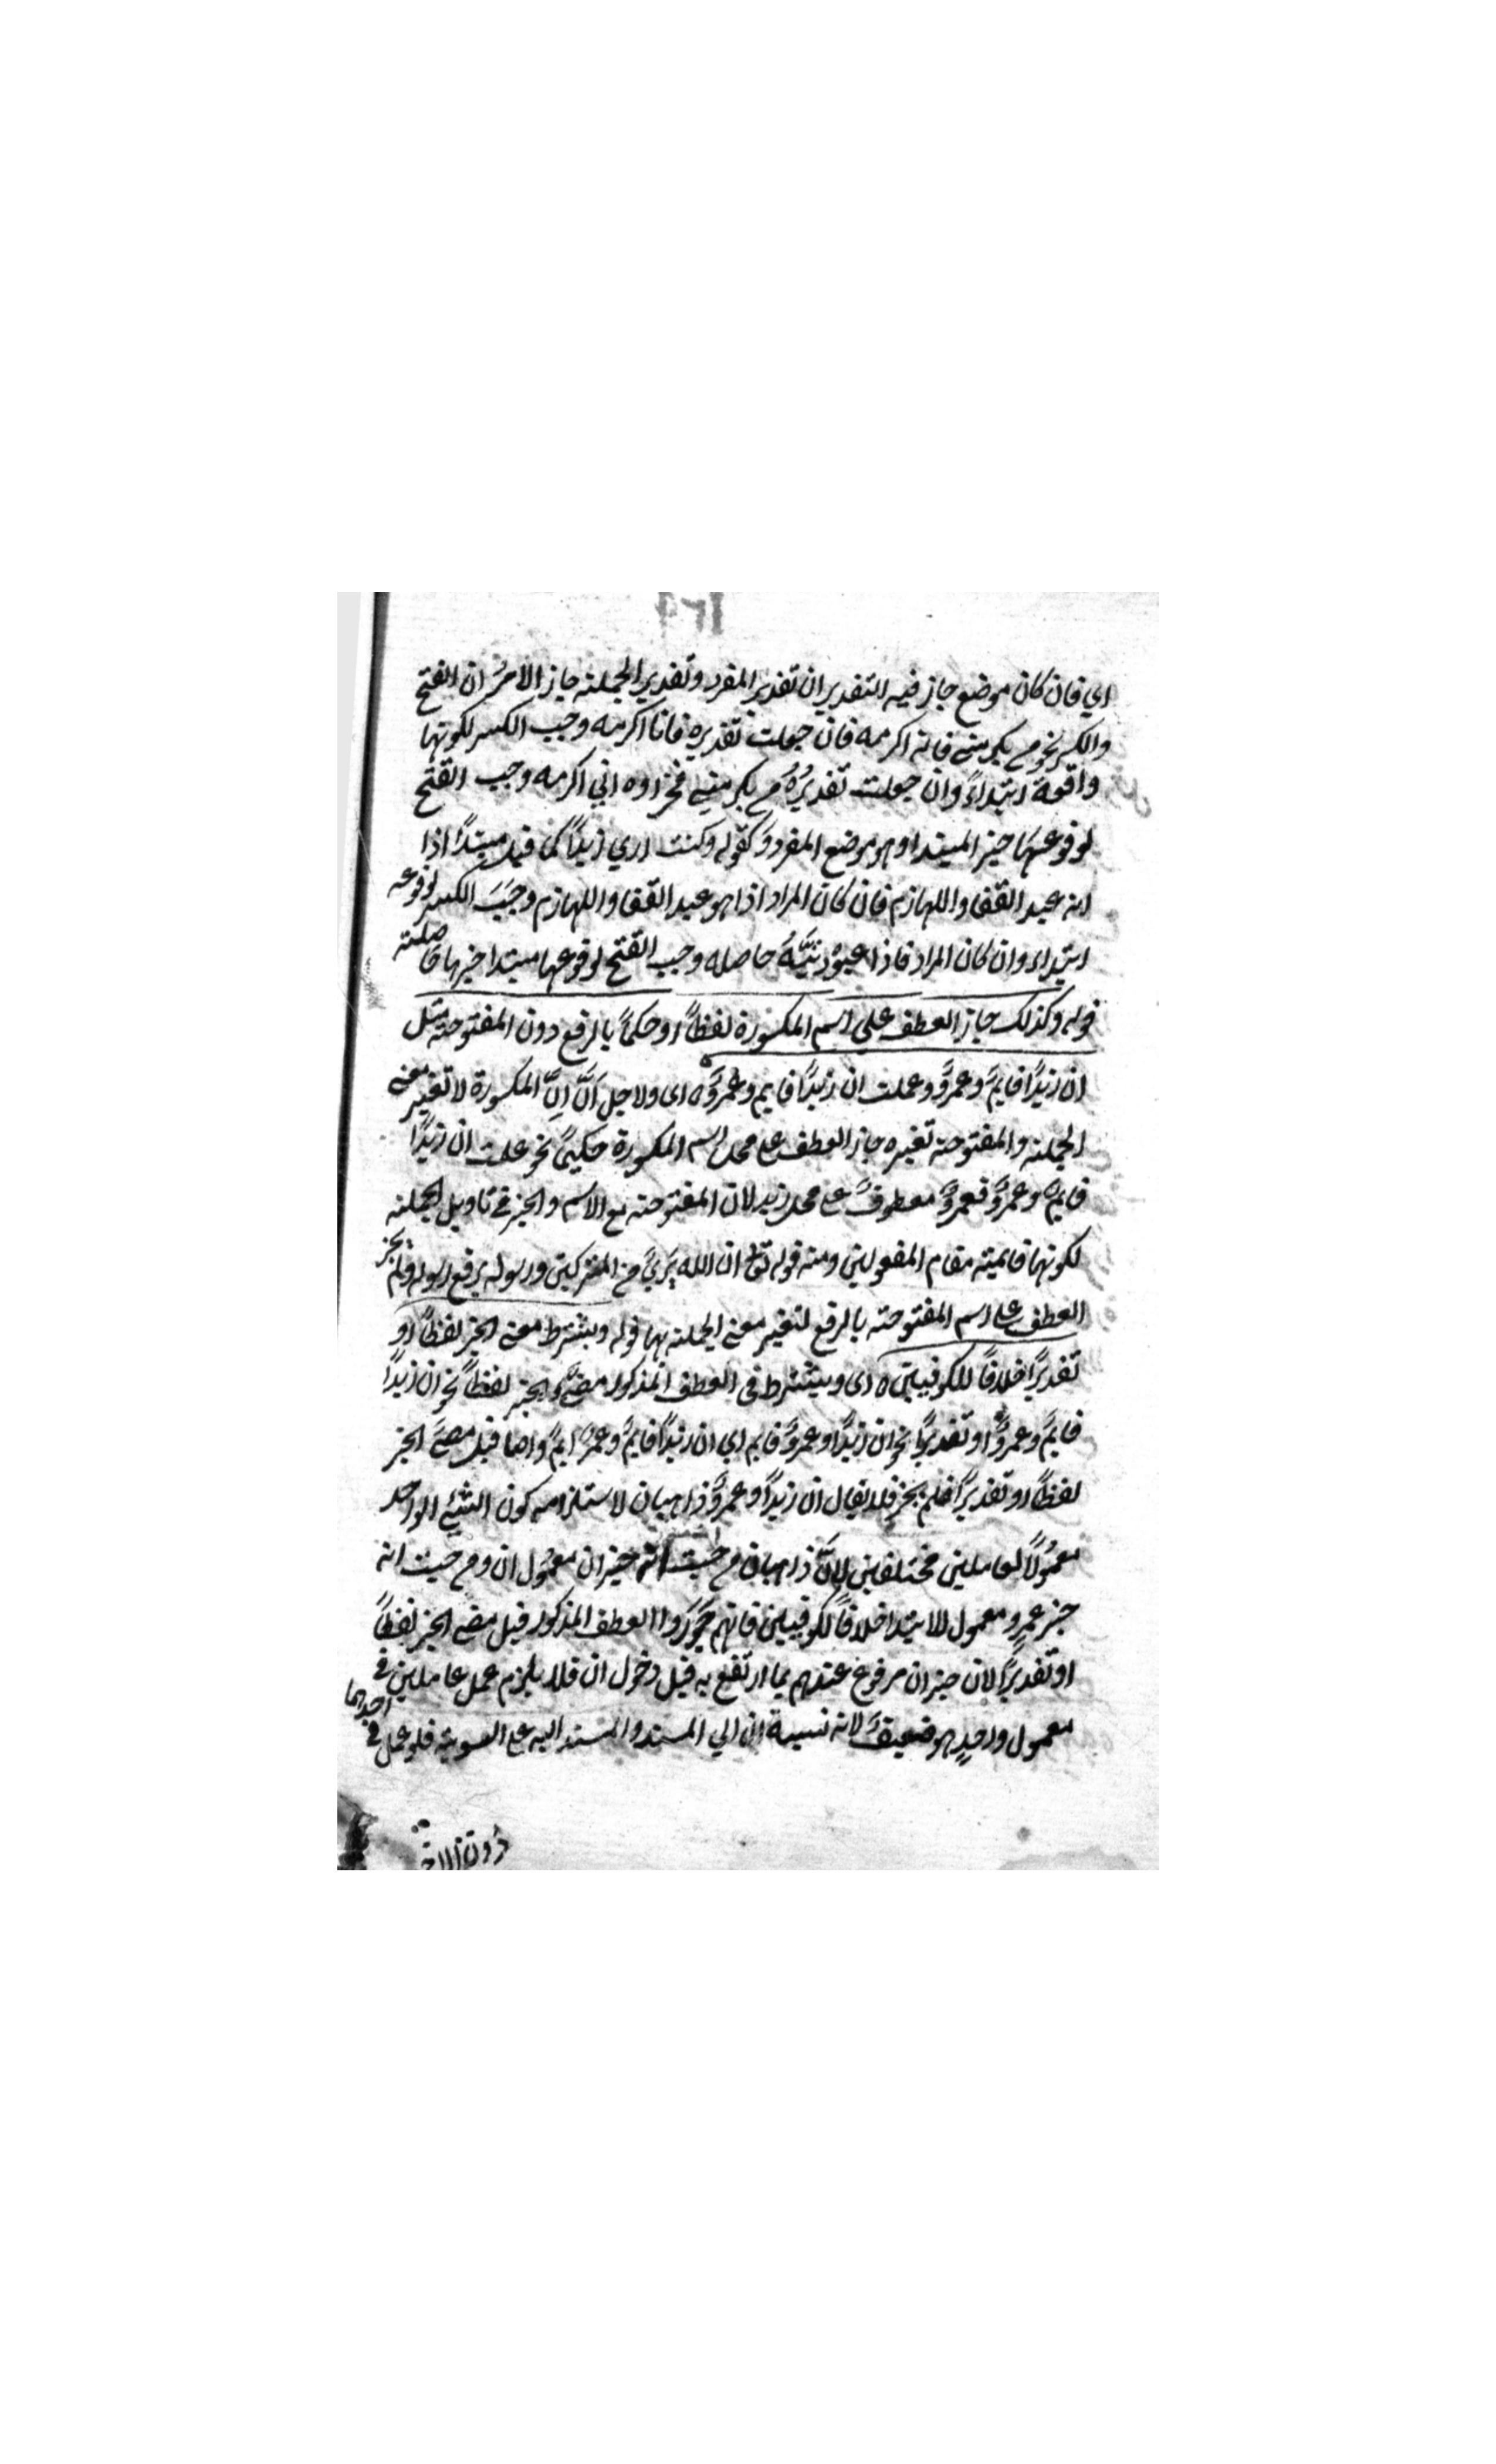 اي فان كان موضع جاز فيه التقدير ان تقدير المفرد وتقدير الجملة جاز الامر ان الفتح
والكسر نحو من يكرمني فانه اكرمه فان جعلت تقديره فانا اكرمه وجب الكسر لكونها
واقعة ابتداءً وان جعلت تقديرُهُ من يكرمني فجزاوه اني اكرمه وجب الفتح
لوقوعها خبر المبتدا وهو موضع المفرد وكقوله وكنت اري زيداً كما قيل سيّداً اذا
انه عبد القفا واللهازم فان كان المراد اذا هو عبد القفا واللهازم وجَبَ الكسر لوقوعه
ابتداء وان كان المراد فاذا عبوديَّتُهُ حاصله وجب الفتح لوقوعها مبتدا خبرها حاصلة
قوله وكذلك جاز العطف علي اسم المكسورة لفظاً او حكماً بالرفع دون المفتوحة مثل
ان زيداً قايمٌ وعمروٌ وعملت ان زيداً قايم وعمروٌ اى ولاجل اَنَّ اِنَّ المكسورة لا تغير معنى
الجملة والمفتوحة تغيره جاز العطف على محل اسم المكسورة حكماً نحو علمت ان زيداً
قايمٌ وعمروٌ فعمروٌ معطوفٌ على محل زيد لان المفتوحة مع الاسم والخبر في تاويل الجملة
لكونها قايمة مقام المفعولين ومنه قوله تعالى ان الله بَرِيٌ من المشركين ورسوله برفع رسوله ولم يجز
العطف على اسم المفتوحة بالرفع لتغير معنى الجملة بها قوله ويشترط مضى الخبر لفظاً او
تقديراً خلافاً للكوفيين ه اى ويشترط فى العطف المذكور مضىُّ الخبر لفظاً نحو ان زيداً
قايمٌ وعمروٌ او تقديراً نحو ان زيداً وعمروٌ قايم اي ان زيداً قايمٌ وعمرٌ قبل مضىّ الخبر
لفظاً او تقديراً فلم يجز فلا يقال ان زيداً وعمروٌ ذاهبان لاستلزامه كون الشئ الواحد
معمولاً لعاملين مختلفين لانَّ ذاهبان من حيث انه خبر ان معمُول ان ومن حيث انه
خبر عمرو معمول للابتدا خلافاً لكوفيين فانهم جَوَّزوا العطف المذكور قبل مضي الخبر لفظاً
او تقديراً لان خبر ان مرفوع عندهم بما ارتفع به قبل دخول ان فلا يلزم عمل عاملين في
معمول واحدٍ وهو ضعيفٌ لانه نسبة ان الي المسند والمسند اليه على السوية فلو عمل في احدهما
دون الاخر